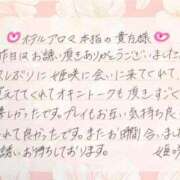 ♡ホテルアロマ 本指の貴方様♡
昨日は お誘い頂きありがとうございました
久しぶりに 姫咲に会いに来てくれて
てくれて オキニトークも すごく
しかったです。プレイもお互い気持ち良く
れて良かったです。またお時間合いま
お誘いお待ちしております。
姫咲